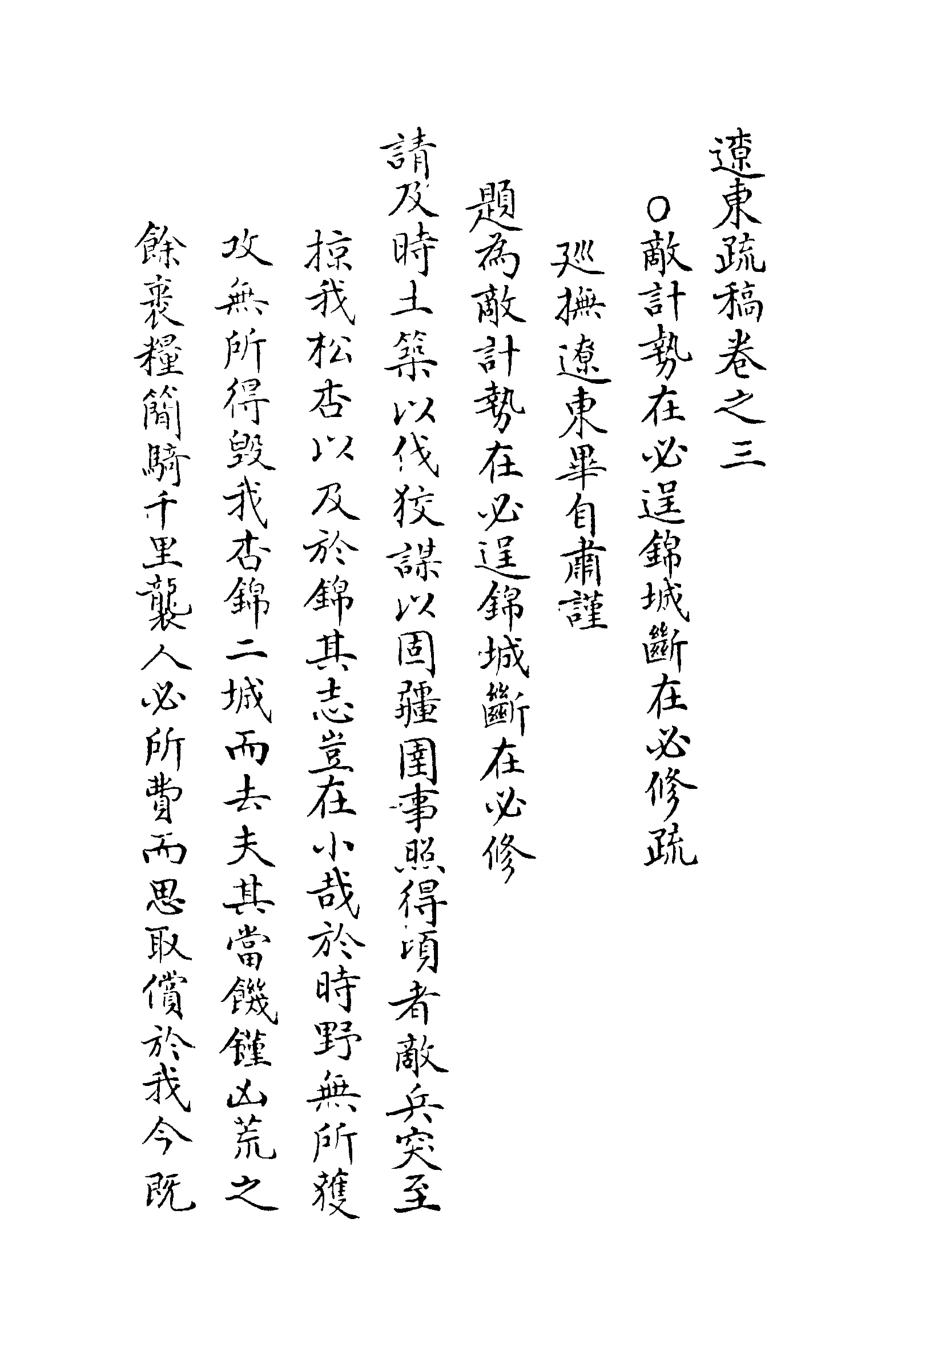 遼東疏稿卷之三
○敵計勢在必逞錦城斷在必修疏
廵撫遼東畢自肅謹
題為敵計勢在必逞錦城斷在必修
請及時土築以伐狡謀以固疆圉事照得頃者敵兵突至
掠我松杏以及於錦其志豈在小哉於時野無所獲
攻無所得毀我杏錦二城而去夫其當饑饉凶荒之
餘裹糧簡騎千里襲人必所費而思取償於我今既